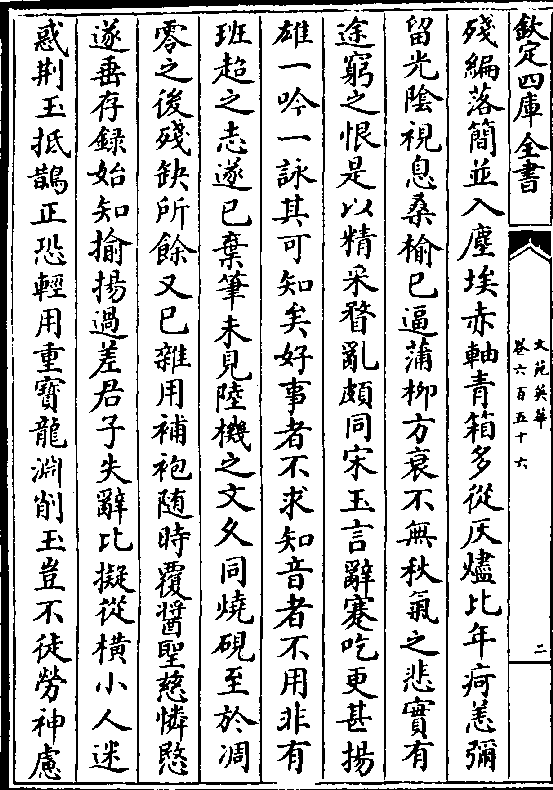 欽定四庫全書
文苑英華
卷六百五十六
二
殘編落簡並入塵埃赤軸青箱多從灰燼比年疴恙彌
留光陰視息桑榆已逼蒲柳方衰不無秋氣之悲實有
途窮之恨是以精采瞀亂頗同宋玉言辭蹇吃更甚揚
雄一吟一詠其可知矣好事者不求知音者不用非有
班超之志遂已棄筆未見陸機之文久同燒硯至於凋
零之後殘缺所餘又已雜用補袍随時覆醬聖慈憐愍
遂垂存録始知揄揚過差君子失辭比擬從横小人迷
惑荆玉抵鵲正恐輕用重寳龍淵削玉豈不徒勞神慮